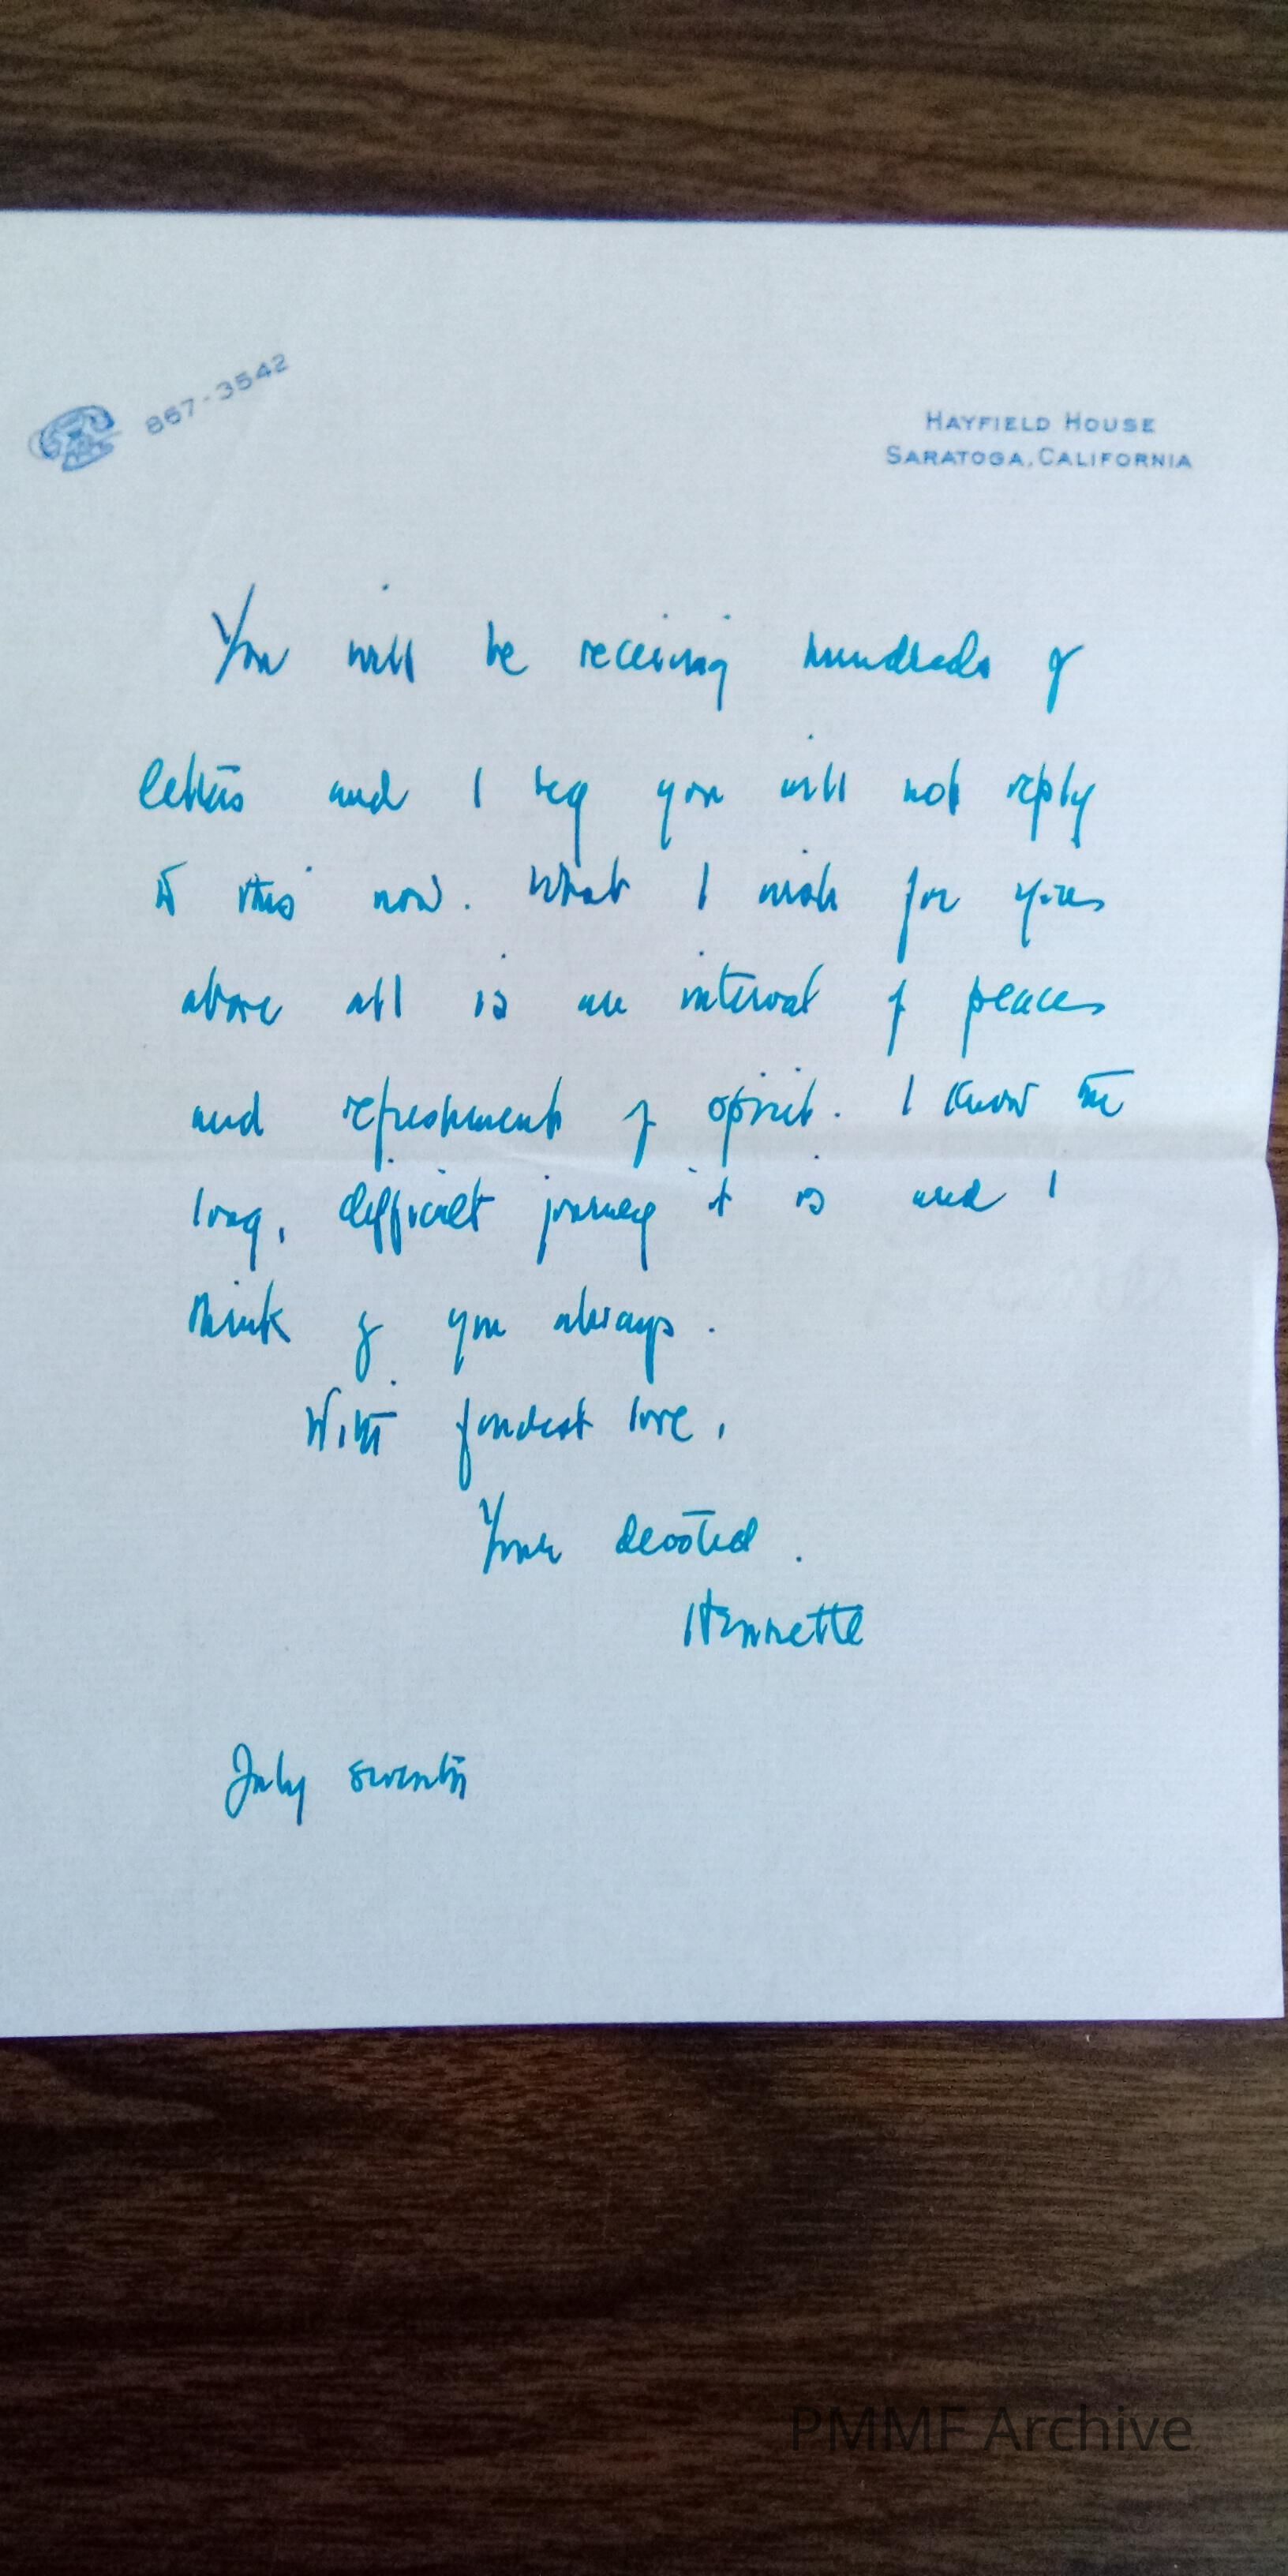 867-3542
HAYFIELD HOUSE
SARATOGA, CALIFORNIA
You will be receiving hundreds of
letters and I beg you will not reply
to this now. What I wish for you
above all is an interval of peace
and refreshment of spirit. I know the
long, difficult journey it is and I
think of you always.
With fondest love,
Your devoted.
Henriette
July seventh
PMMF Archive